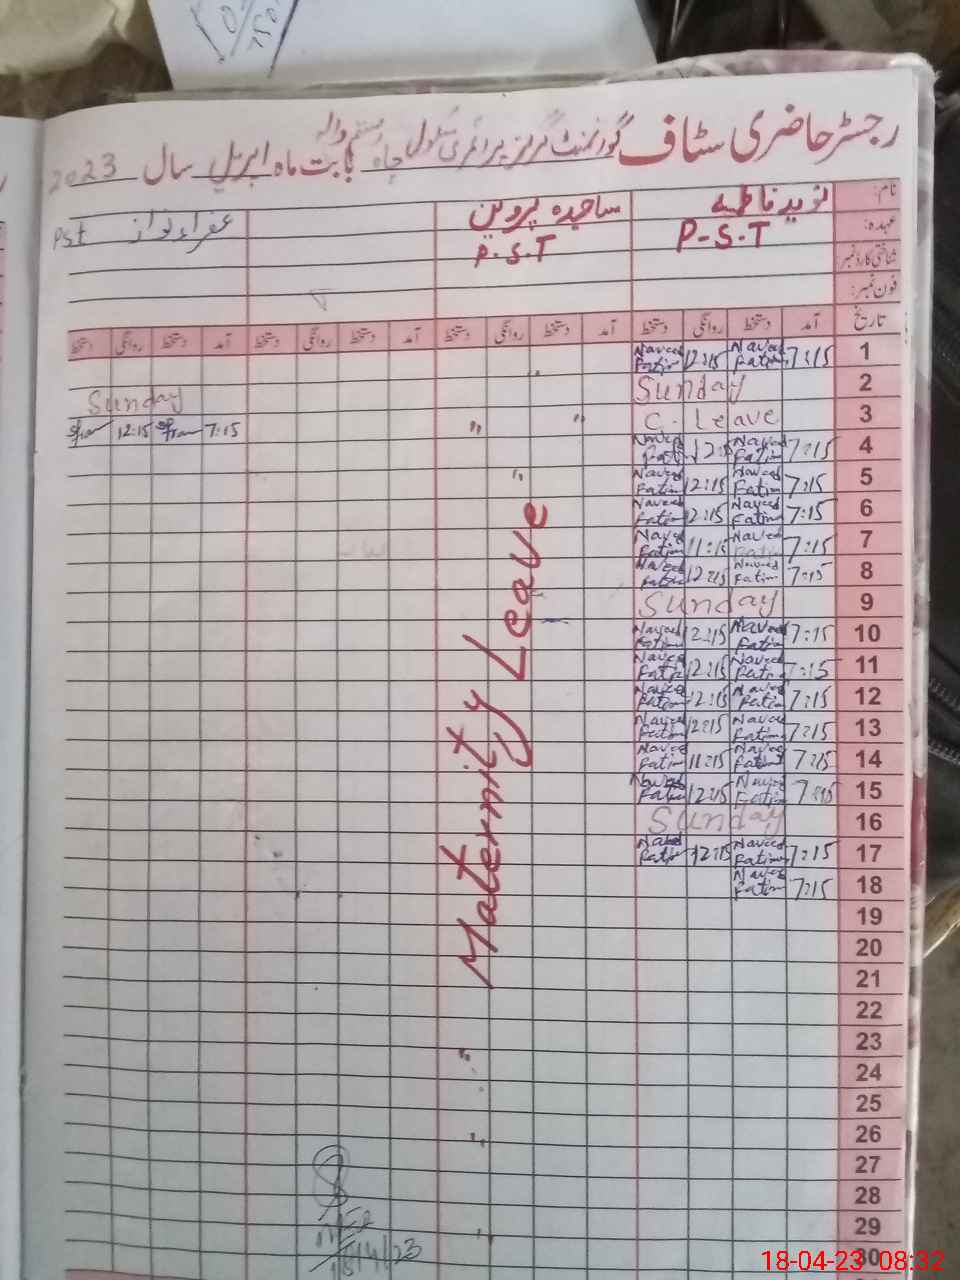 رجسٹر حاضری سٹاف گورنمنٹ گرلز پرائمری سکول چاہ والہ بابت ماہ اپریل سال 2023
نام: نوید فاطمہ ساجدہ پروین
عہدہ: P-S-T P.S.T عفراء نواز Pst
شناختی کارڈ نمبر:
فون نمبر:
تاریخ آمد دستخط روانگی دستخط آمد دستخط روانگی دستخط آمد دستخط روانگی دستخط آمد دستخط روانگی دستخط
1 7:15 Naveed Fatima 12:15 Naveed Fatima
2 Sunday Sunday
3 C. Leave 7:15 12:15
4 7:15 Naveed Fatima 12:15 Naveed Fatima
5 7:15 Naveed Fatima 12:15 Naveed Fatima
6 7:15 Naveed Fatima 12:15 Naveed Fatima
7 7:15 Naveed Fatima 11:15 Naveed Fatima
8 7:15 Naveed Fatima 12:15 Naveed Fatima
9 Sunday
10 7:15 Naveed Fatima 12:15 Naveed Fatima
11 7:15 Naveed Fatima 12:15 Naveed Fatima
12 7:15 Naveed Fatima 12:15 Naveed Fatima
13 7:15 Naveed Fatima 12:15 Naveed Fatima
14 7:15 Naveed Fatima 11:15 Naveed Fatima
15 7:15 Naveed Fatima 12:15 Naveed Fatima
16 Sunday
17 7:15 Naveed Fatima 12:15 Naveed Fatima
18 7:15 Naveed Fatima
Maternity Leave
19
20
21
22
23
24
25
26
27
28
29
30
18-04-23 08:32